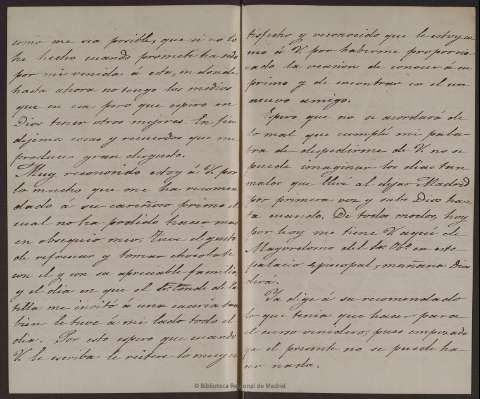 como me sea posible, que si no lo
he hecho cuando prometí ha sido
por mi venida á esta, en donde
hasta ahora no tengo los medios
que en esa pero que espero en
Dios tener otros mejores. En fin
dejemos cosas y recuerdos que me
producen gran disgusto.
Muy reconocido estoy á V. por
lo mucho que me ha recomen
dado á su cariñoso primo el
cual no ha podido hacer mas
en obsequio mio. Tuve el gusto
de refrescar y tomar chocolate
con él y con su apreciable familia
y el dia en que el
me invitó á una
bien le tuve á mi lado todo el
dia. Por esto espero que cuando
V. le escriba le reitere lo muy
tisfecho y reconocido que le estoy co
mo á V. por haberme proporcio
nado la ocasion de conocer á su
primo y de encontrar en él un
nuevo amigo.
Espero que no se acordará de
lo mal que cumplí mi pala
bra de despedirme de V. no se
puede imaginar los dias tan
malos que llevé al dejar Madrid
por primera vez y sabe Dios has
ta cuando. De todos modos, hoy
por hoy me tiene V. aquí de
Mayordomo del Sr. Obpo. en este
palacio episcopal, mañana Dios
dirá.
Ya dije á su recomendado
lo que tenia que hacer para
el curso venidero, pues empezado
ya el presente no se puede ha
cer nada.
© Biblioteca Regional de Madrid